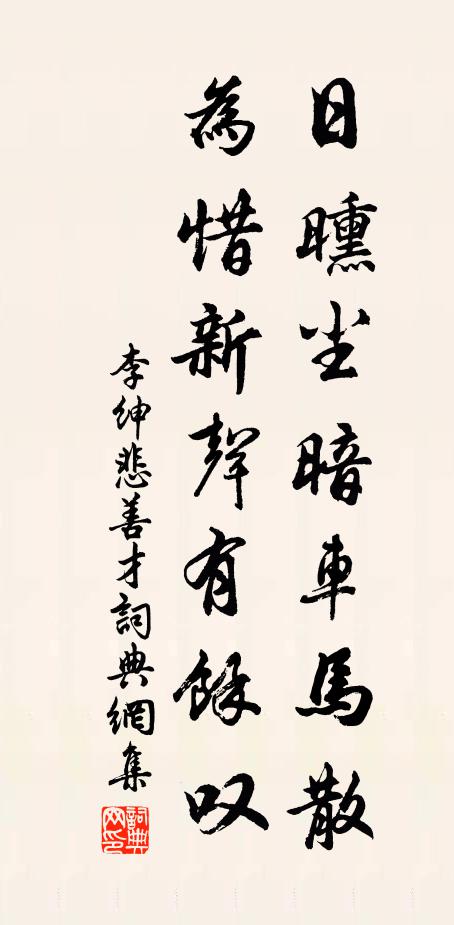 日曛尘暗車馬散
為惜新聲有餘叹
李紳悲善才詞典網集
詞典网印